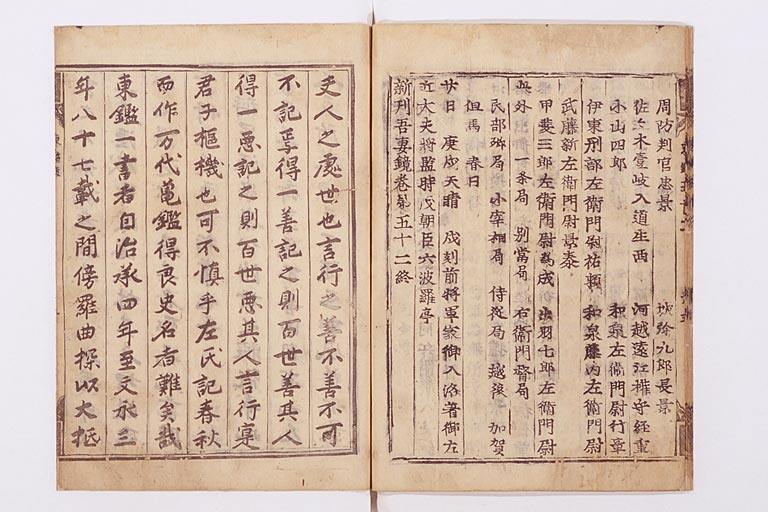 周防判官忠景　城弥九郎長景
佐々木壹岐入道生西　河越遠江權守経重
小山四郎　和泉左衛門尉行章
伊東刑部左衛門尉祐頼　和泉藤内左衛門尉
武藤新左衛門尉景泰
甲斐三郎左衛門尉為成　出羽七郎左衛門尉
女房　一条局　別當局　右衛門督局
民部卿局　小宰相局　侍従局　越後　加賀
但馬　春日
廿日　庚戌天晴　戌刻前將軍家御入洛著御左
近大夫將監時茂朝臣六波羅亭
新刊吾妻鏡卷第五十二終
夫人之處世也言行之善不善不可
不記焉得一善記之則百世善其人
得一惡記之則百世惡其人言行寔
君子樞機也可不慎乎左氏記春秋
而作万代龜鑑得良史名者難矣哉
東鑑一書者自治承四年至文永三
年八十七載之間傍羅曲探以大抵